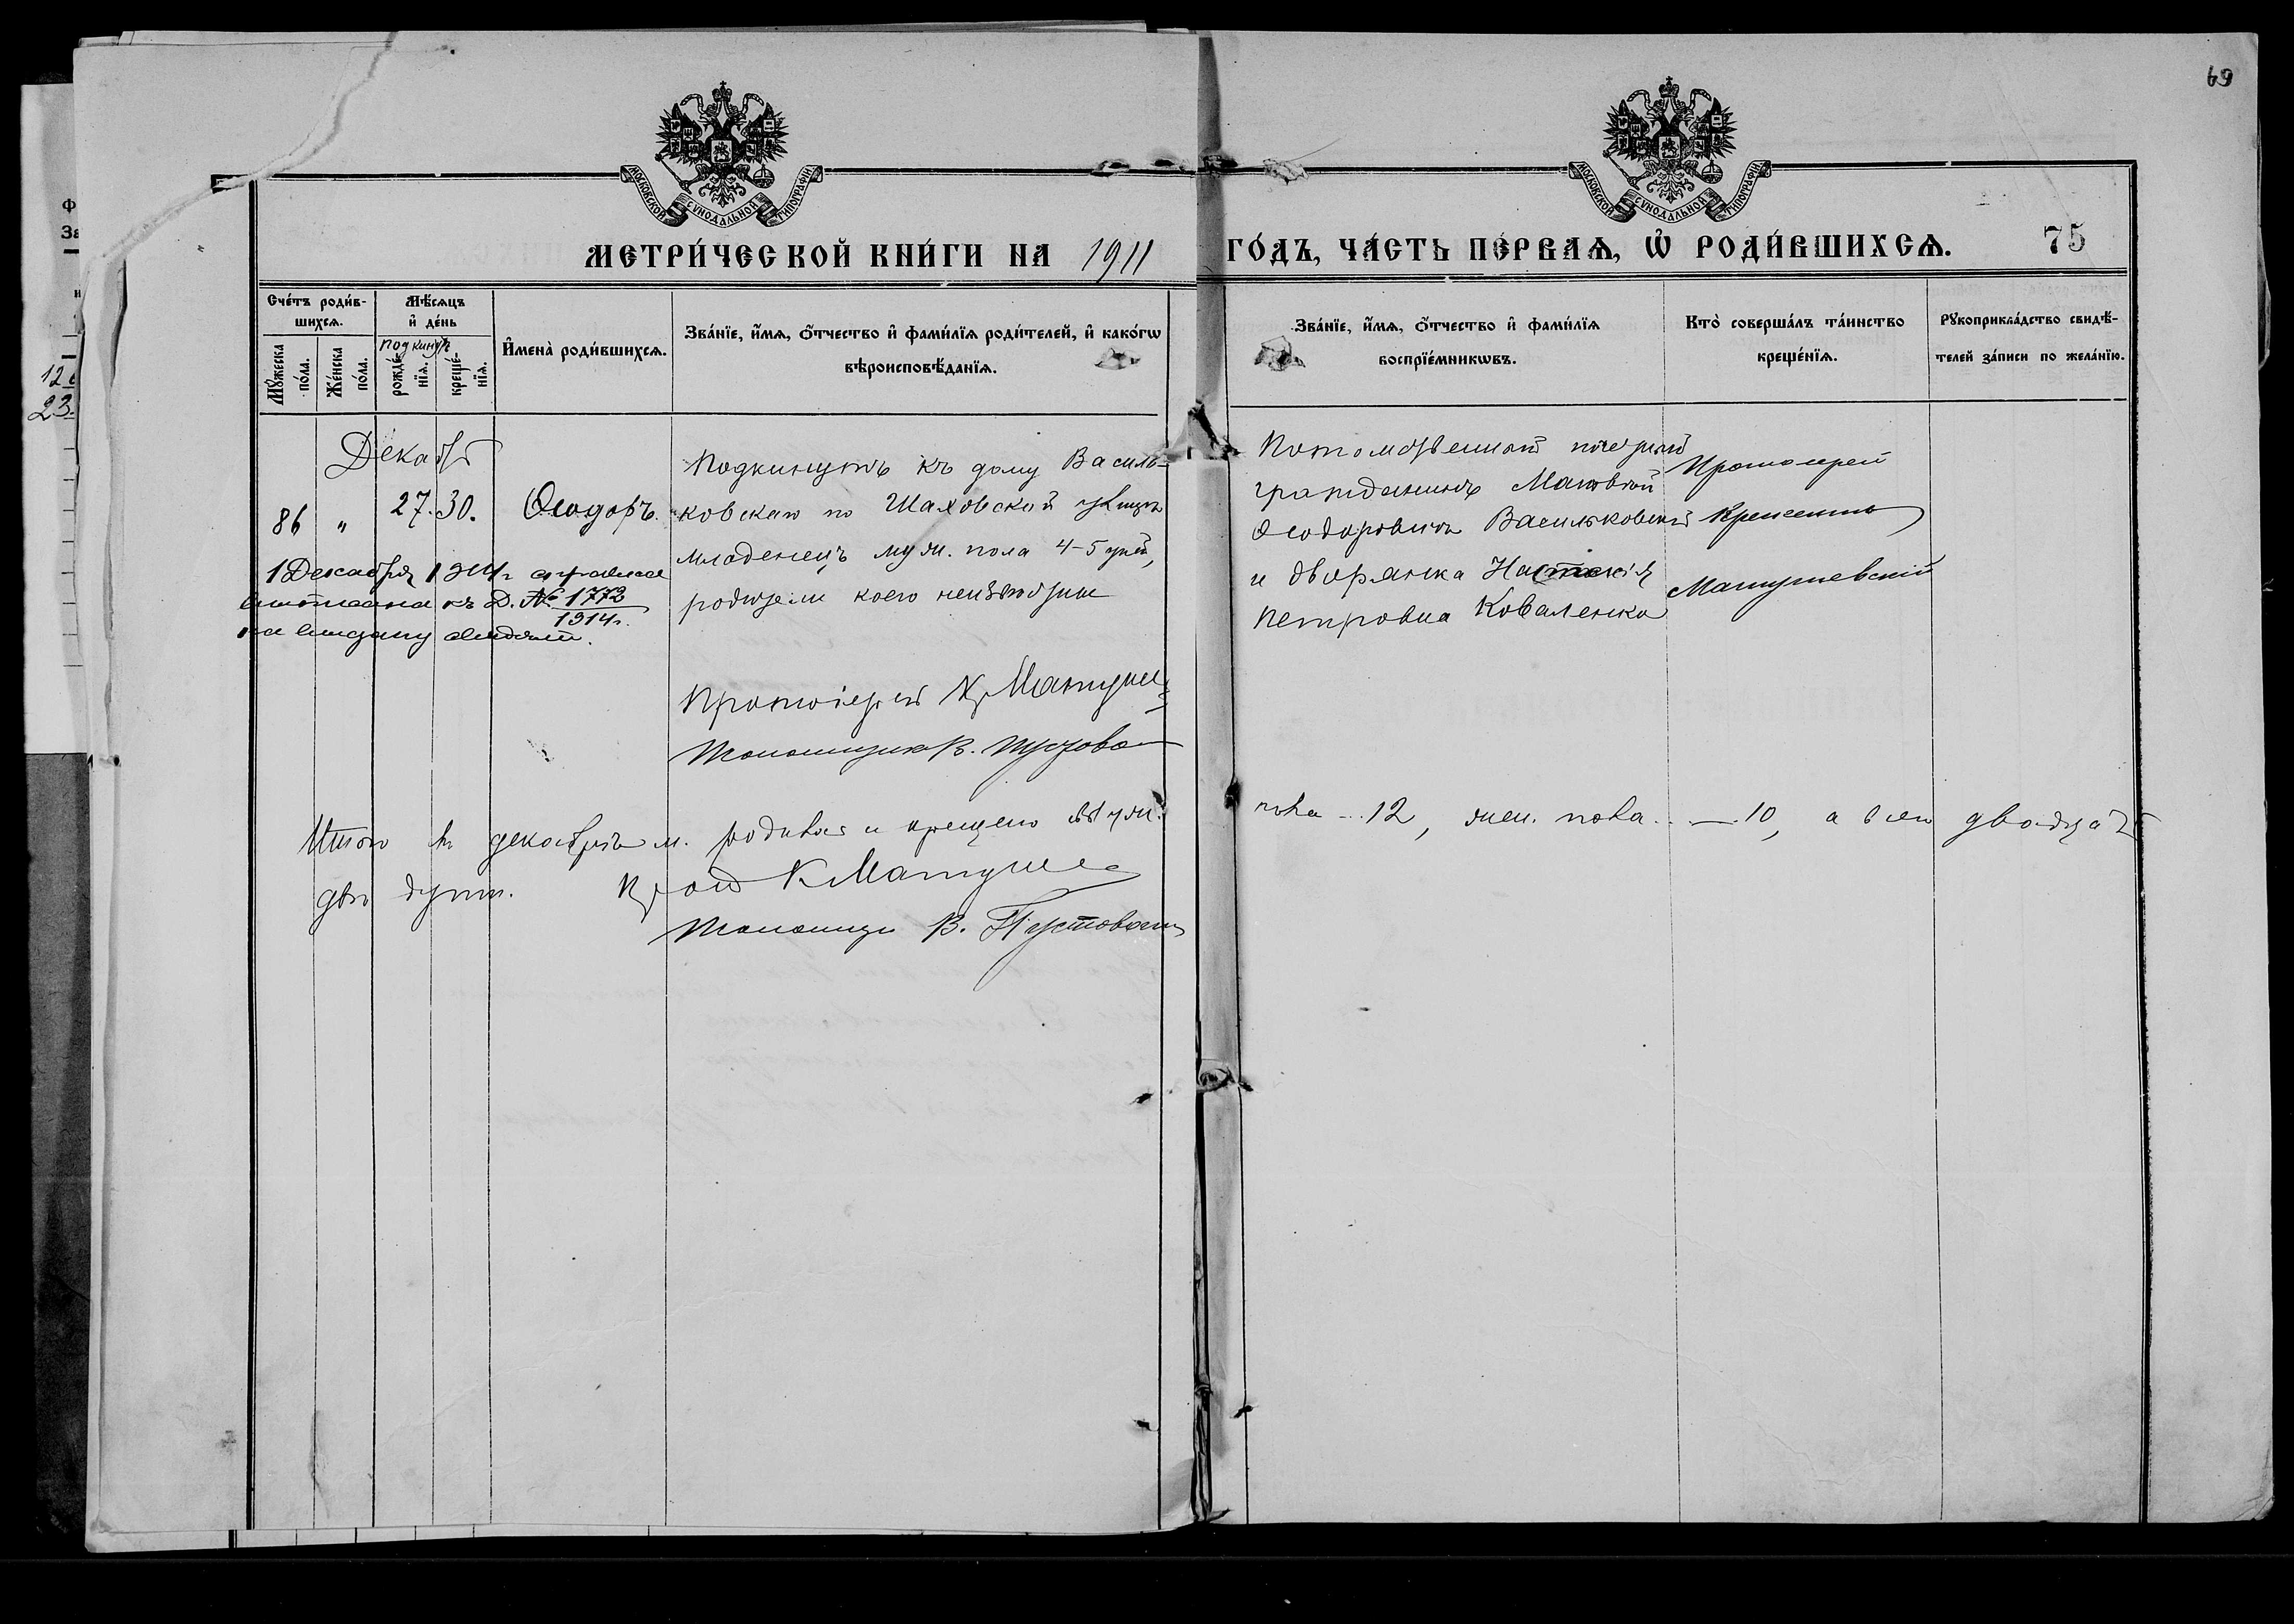 69
МОСКОВСКОЙ СѴНОДАЛЬНОЙ ТИПОГРАФІИ
МОСКОВСКОЙ СѴНОДАЛЬНОЙ ТИПОГРАФІИ
МЕТРИ́ЧЕСКОЙ КНИ́ГИ НА 1911
ГО́ДЪ, ЧА́СТЬ ПЕ́РВАѦ, Ѡ҆ РОДИ́ВШИХСѦ. 75
Сче́тъ роди́в-
шихсѧ.
Мꙋ́жеска
по́ла.
Же́нска
по́ла.
Мѣ́сѧцъ
и҆ де́нь
подкинут
рожде́-
нїѧ.
креще́-
нїѧ.
И҆мена̀ роди́вшихсѧ.
Зва́нїе, и҆́мѧ, ѻ҆́тчество и҆ фами́лїѧ роди́телей, и҆ како́гѡ
вѣроисповѣ́данїѧ.
Зва́нїе, и҆́мѧ, ѻ҆́тчество и҆ фами́лїѧ
воспрїе́мникѡвъ.
Кто̀ соверша́лъ та́инство
креще́нїѧ.
Рꙋкоприкла́дство свидѣ́-
телей за́писи по жела́нїю.
Декабр
86 " 27. 30. Ѳеодоръ.
Подкинутъ къ дому Василь-
ковскаго по Шаховской улицѣ
младенецъ муж. пола 4-5 дней,
родители коего неизвѣстны
Потомственный почетный
гражданинъ Матвѣй
Ѳеодоровичъ Васильковскій
и дворянка Настасія
Петровна Коваленко
Протоиерей
Крискентъ
Матушевскій
1 Декабря 1914 г. справка
къ Д. № 1772
1914 г.
на выдачу
Протоіерей К Матушев
Псаломщикъ В. Пустова
Итого въ декабрѣ м. родилось и крещено муж.
пола - 12, жен. пола - 10, а всего двадцать
двѣ души.
Прот К Матушев
Псаломщикъ В. Пустовой
12
23